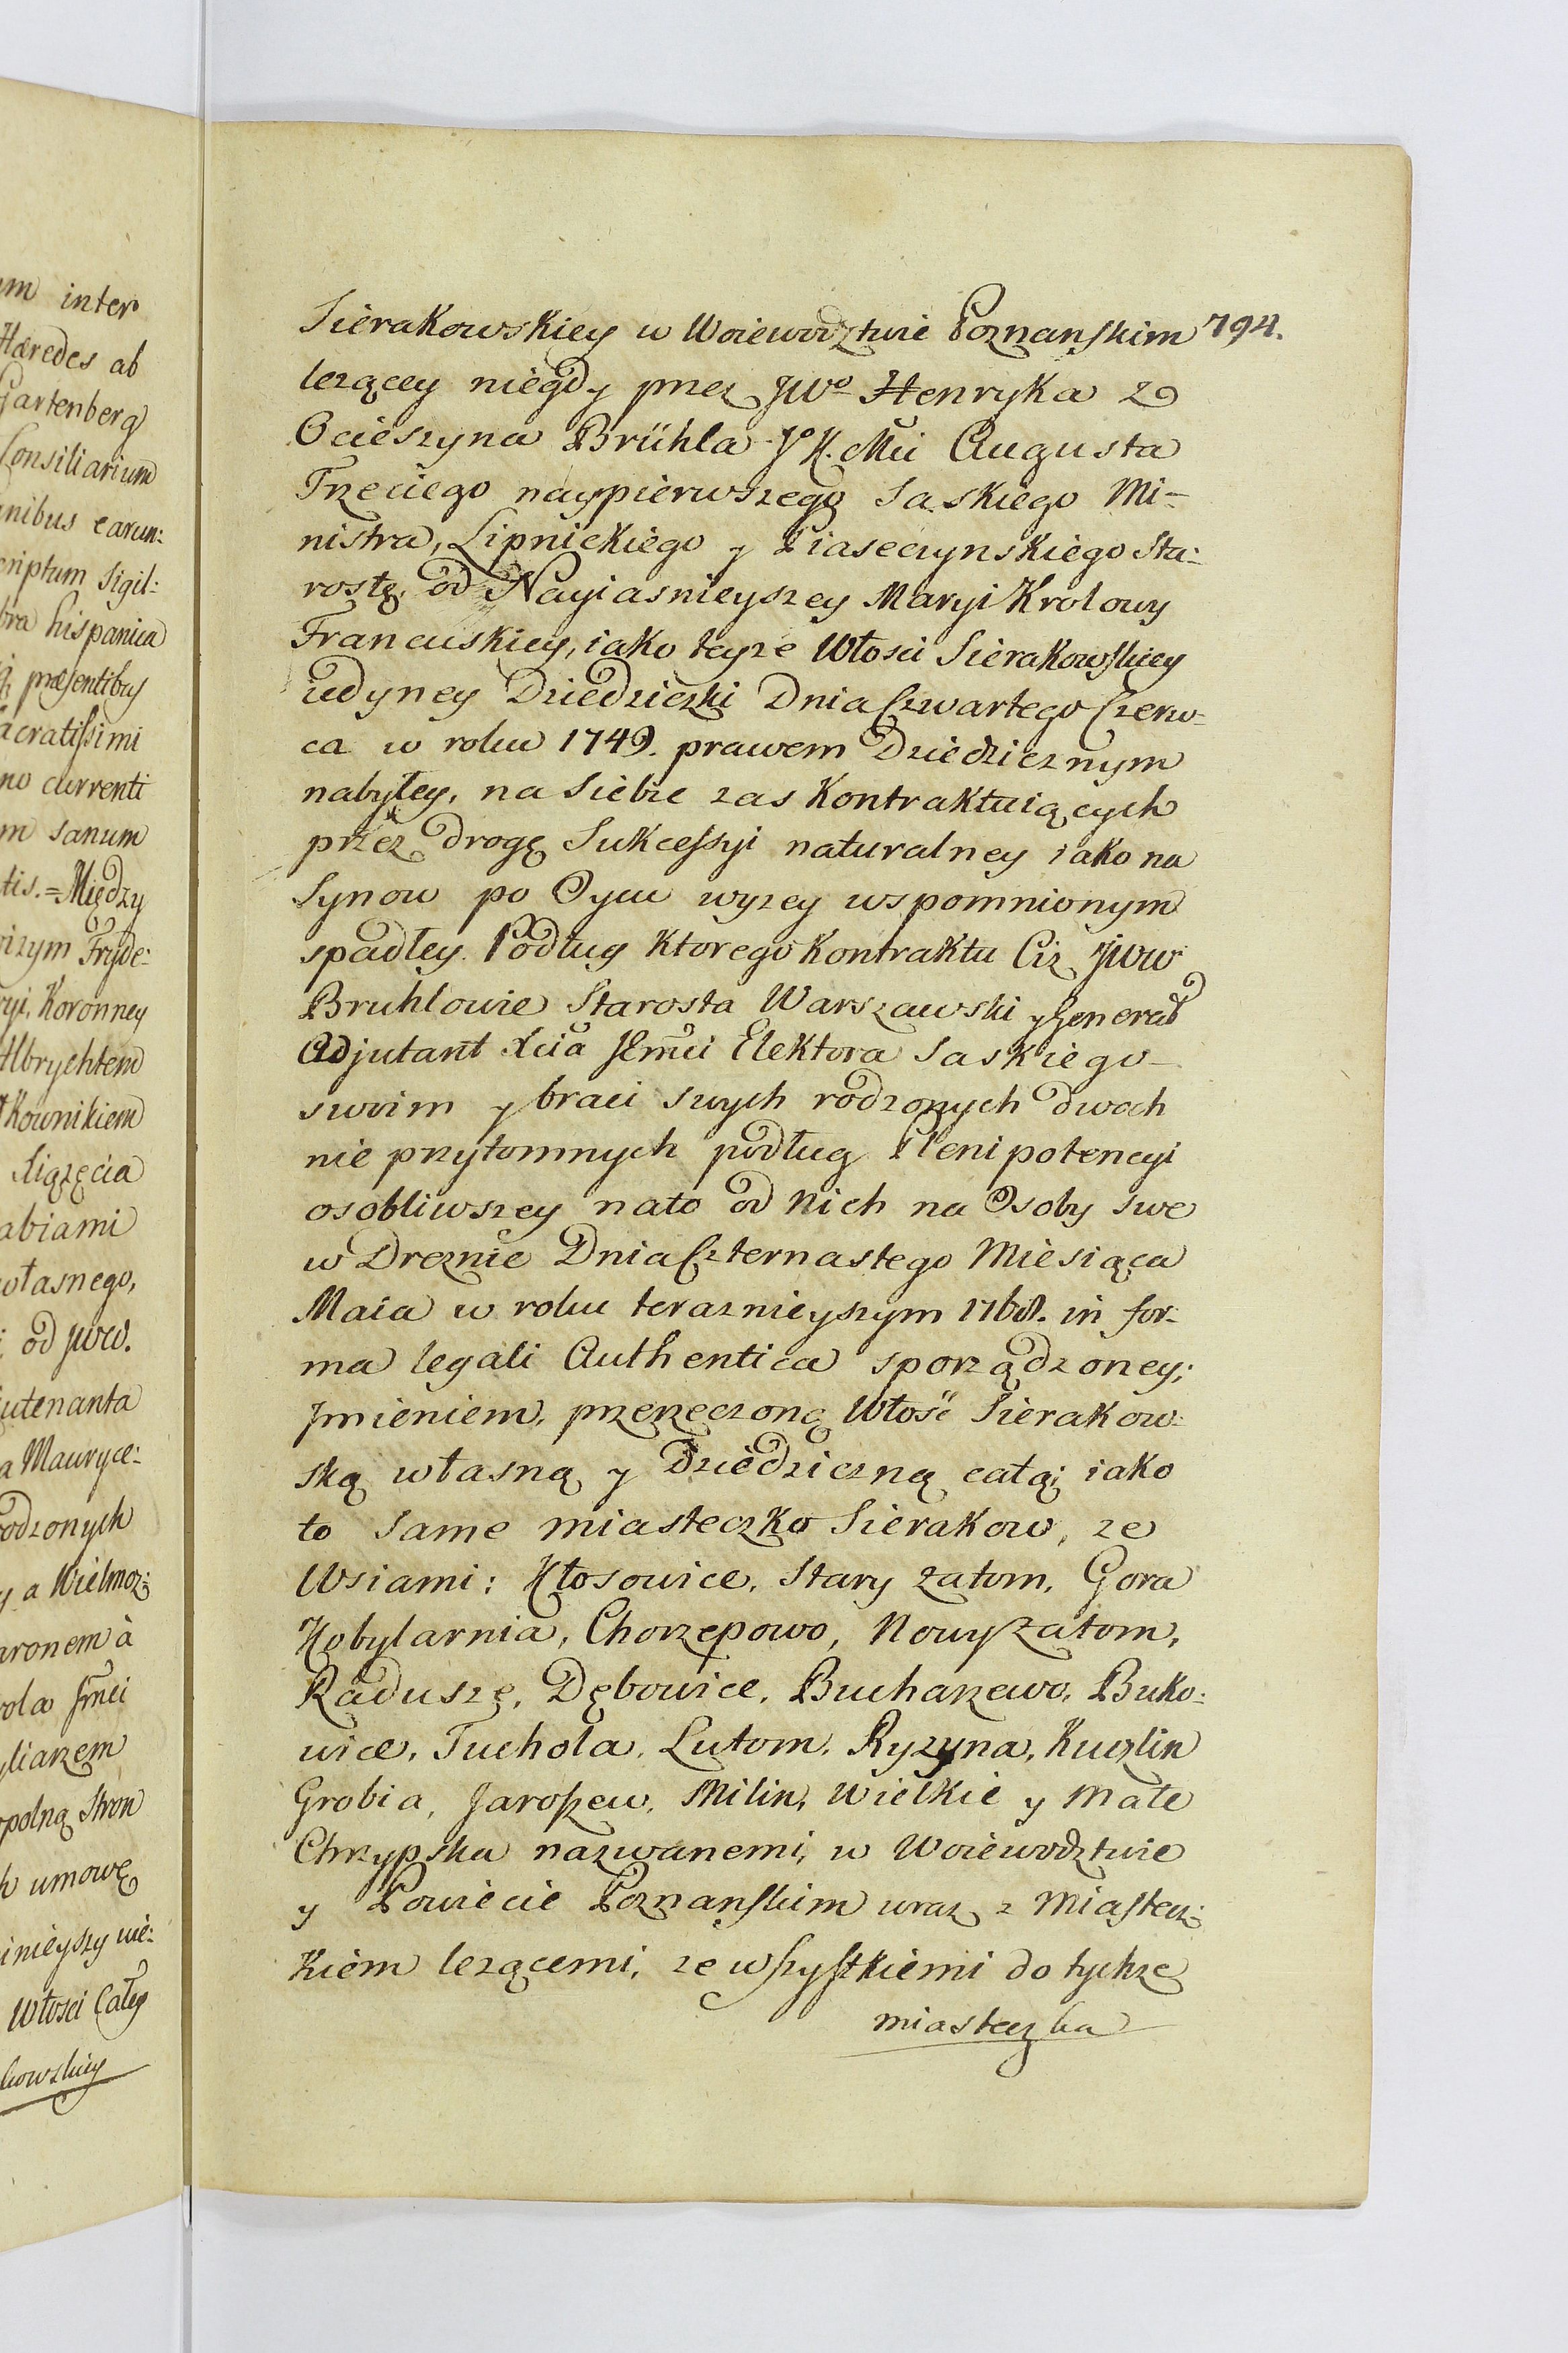 um inter
Hæredes ab
Gartenberg
Consiliarium
nibus earun:
criptum Sigil:
tra hispanica
præsentibus
acratissimi
no currenti
m sanum
tis.=Między
wszym Fryde:
ryi, Koronney
Albrychtem
łkownikiem
Xiążęcia
abiami
własnego,
od JWW.
utenanta
a Mauryce:
rodzonych
y a Wielmoz:
aronem à
ola Jmci
yliarzem
polną Stron
h umowę
inieyszy wie:
Włosci Całey
kowskiey
Sierakowskiey w Woiewodztwie Poznanskim 794.
lezącey niegdy przez JWo Henryka z
Ocieszyna Brühla JoK.Mci Augusta
Trzeciego naypierwszego Saskiego Mi-
nistra, Lipnickiego y Piaseczynskiego Sta:
rostę, od Nayiasnieyszey Maryi Krolowy
Francuskiey, iako teyze Włosci Sierakowskiey
iedyney Dziedziczki Dnia Czwartego Czerw-
ca w roku 1749. prawem Dziedzicznym
nabyłey, na Siebie zas Kontraktuiących
przez drogę Sukcessyi naturalney iako na
Synow po Oycu wyzey wspomnionym
spadłey. Podług Ktorego Kontraktu Ciz JWW
Bruhlowie Starosta Warszawski y Generał
Adjutant Xcia JEmci Elektora Saskiego-
swoim y braci swych rodzonych dwoch
nie przytomnych podług Plenipotencyi
osobliwszey nato od Nich na Osoby swe
w Dreznie Dnia Czternastego Miesiąca
Maia w roku teraznieyszym 1768. in for-
ma legali Authentica sporządzoney;
Jmieniem, przerzeczoną Włość Sierakow:
ską własną y Dziedziczną całą; iako
to Same miasteczko Sierakow, ze
Wsiami: Kłosowice, Stary Zatom, Gora
Kobylarnia, Chorzępowo, Nowy Zatom,
Radusze, Dębowice, Bucharzewo, Buko:
wice, Tuchola, Lutom, Ryzyna, Kuczlin
Grobia, Jaroszew, Milin, Wielkie y Małe
Chrzypska nazwanemi, w Woiewodztwie
y Powiecie Poznanskim wraz z Miastecz:
Kiem lezącemi, ze wszystkiemi do tychze
miasteczka